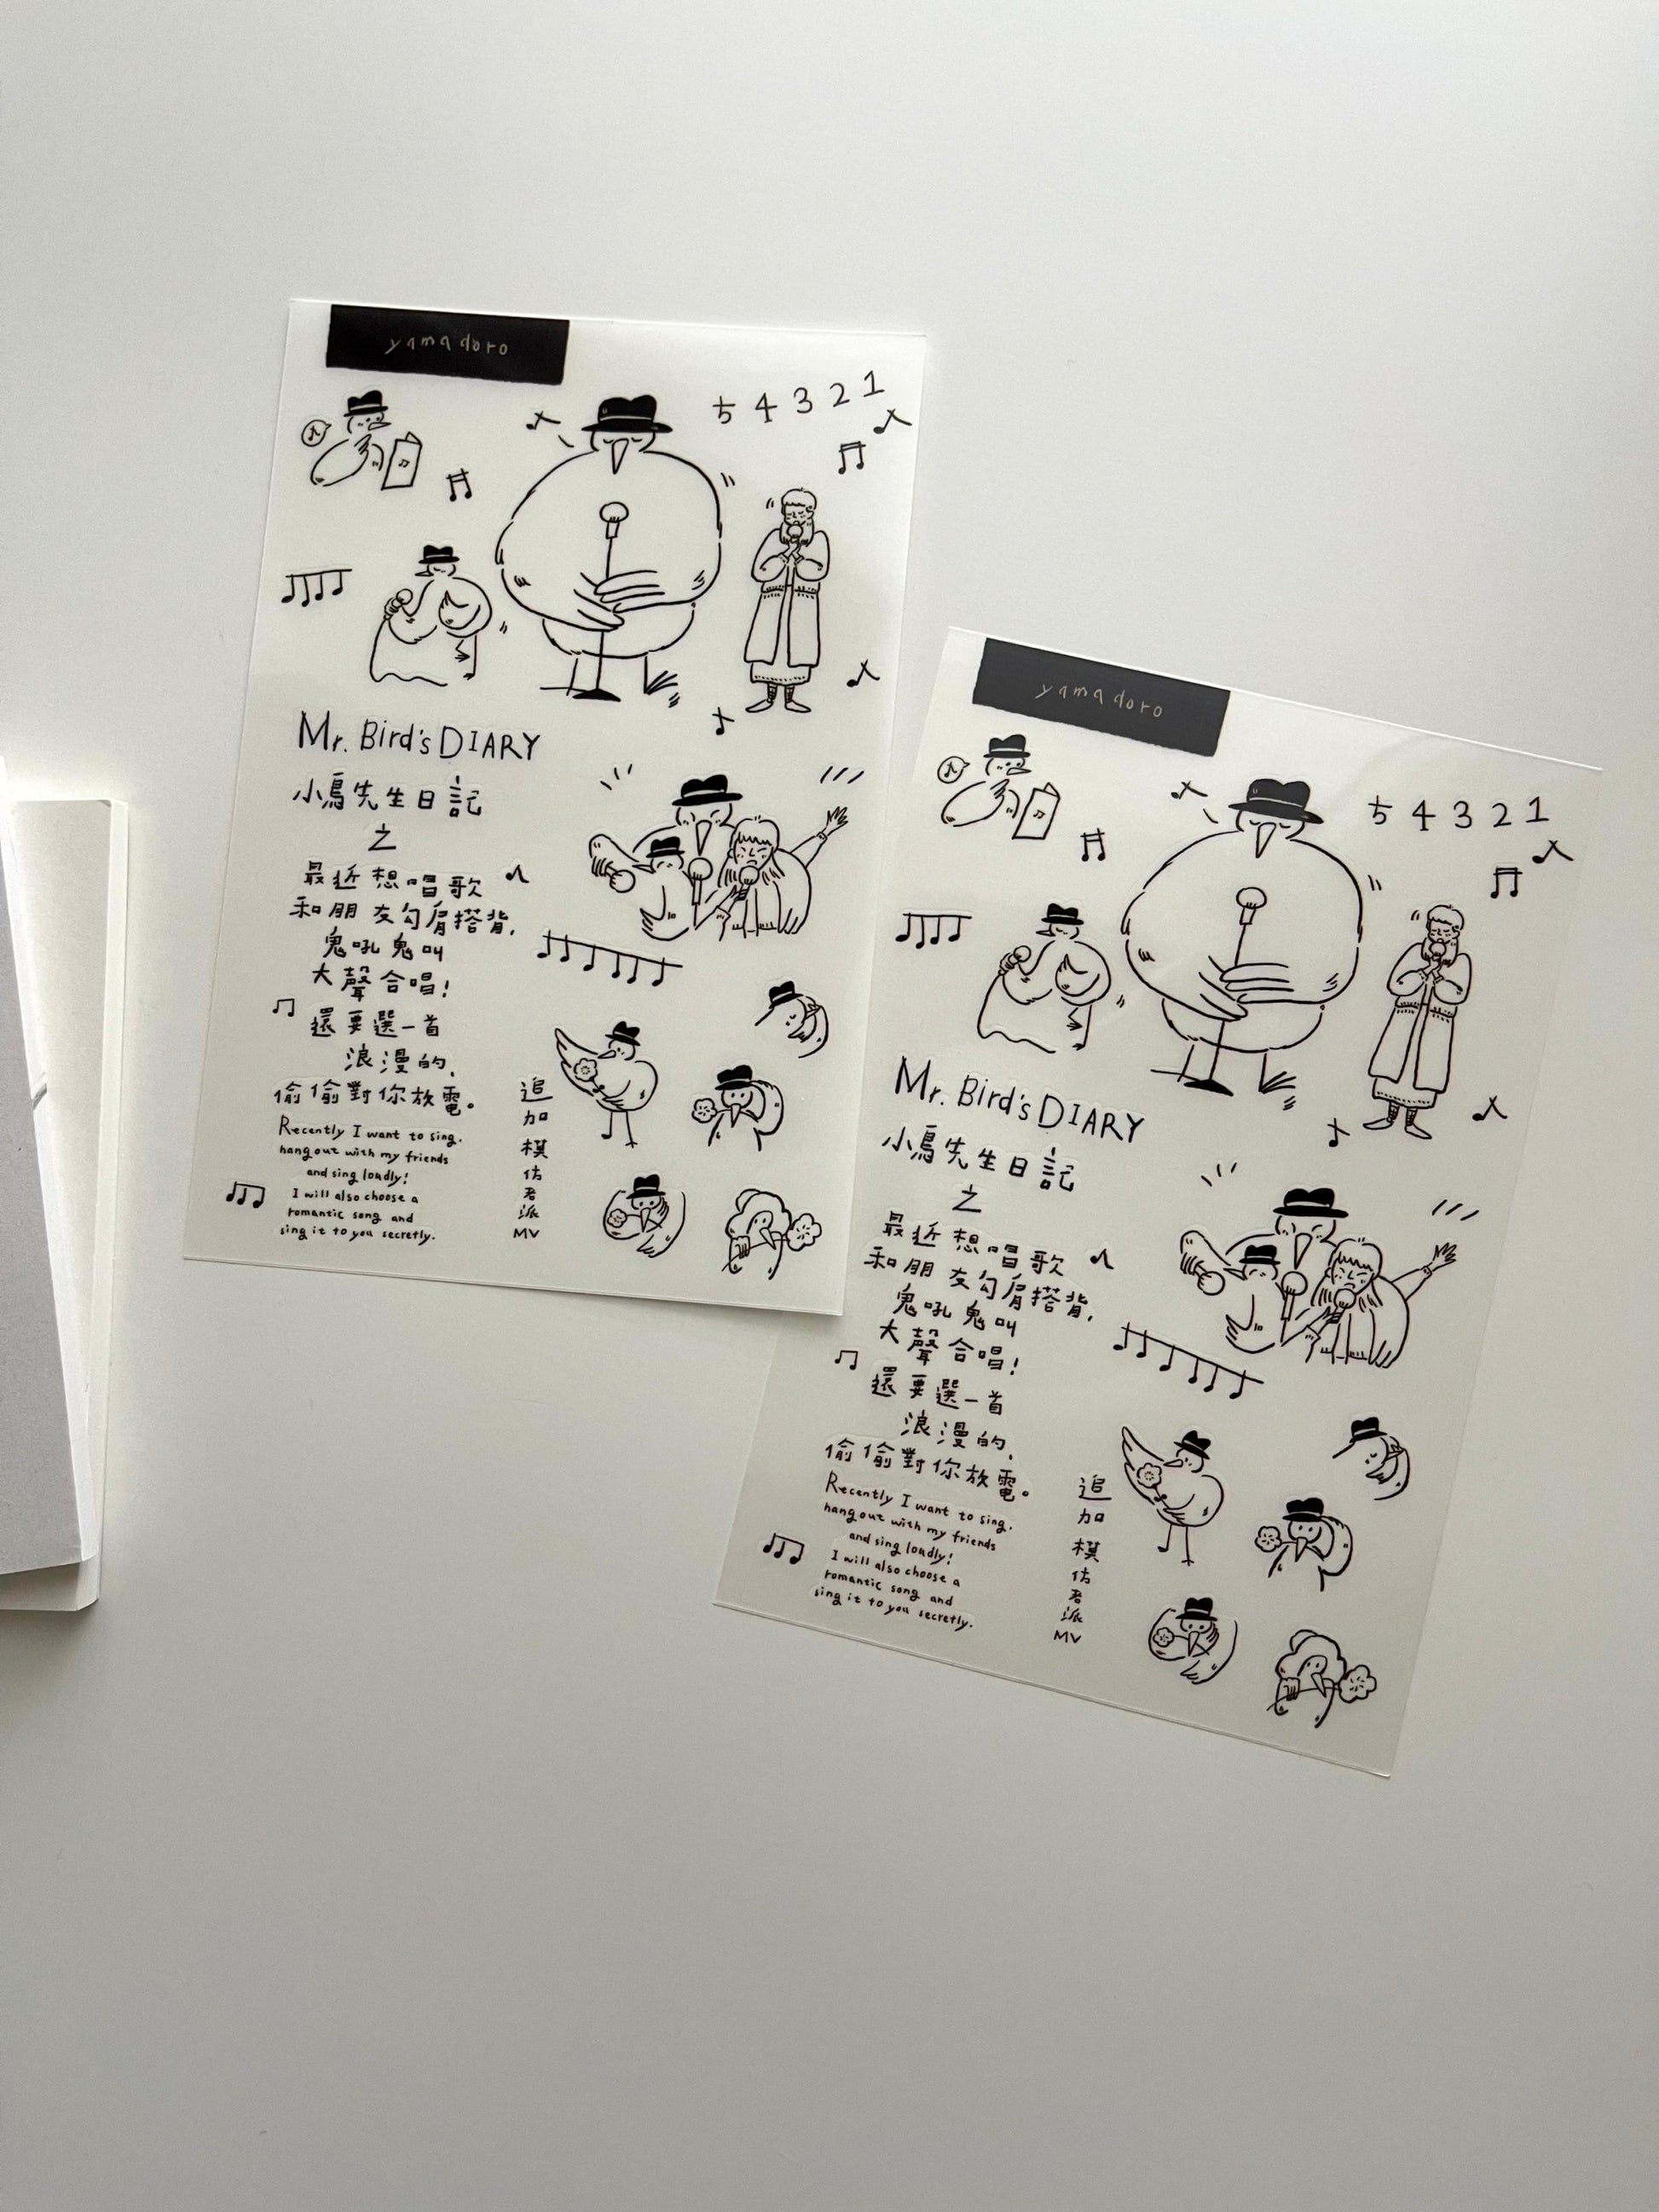 yamadoro
5 4 3 2 1
Mr. Bird's DIARY
小鳥先生日記
之
最近想唱歌
和朋友勾肩搭背,
鬼吼鬼叫
大聲合唱!
還要選一首
浪漫的,
偷偷對你放電。
Recently I want to sing.
hang out with my friends
and sing loudly!
I will also choose a
romantic song and
sing it to you secretly.
追加模仿老派MV
yamadoro
5 4 3 2 1
Mr. Bird's DIARY
小鳥先生日記
之
最近想唱歌
和朋友勾肩搭背,
鬼吼鬼叫
大聲合唱!
還要選一首
浪漫的,
偷偷對你放電。
Recently I want to sing.
hang out with my friends
and sing loudly!
I will also choose a
romantic song and
sing it to you secretly.
追加模仿老派MV